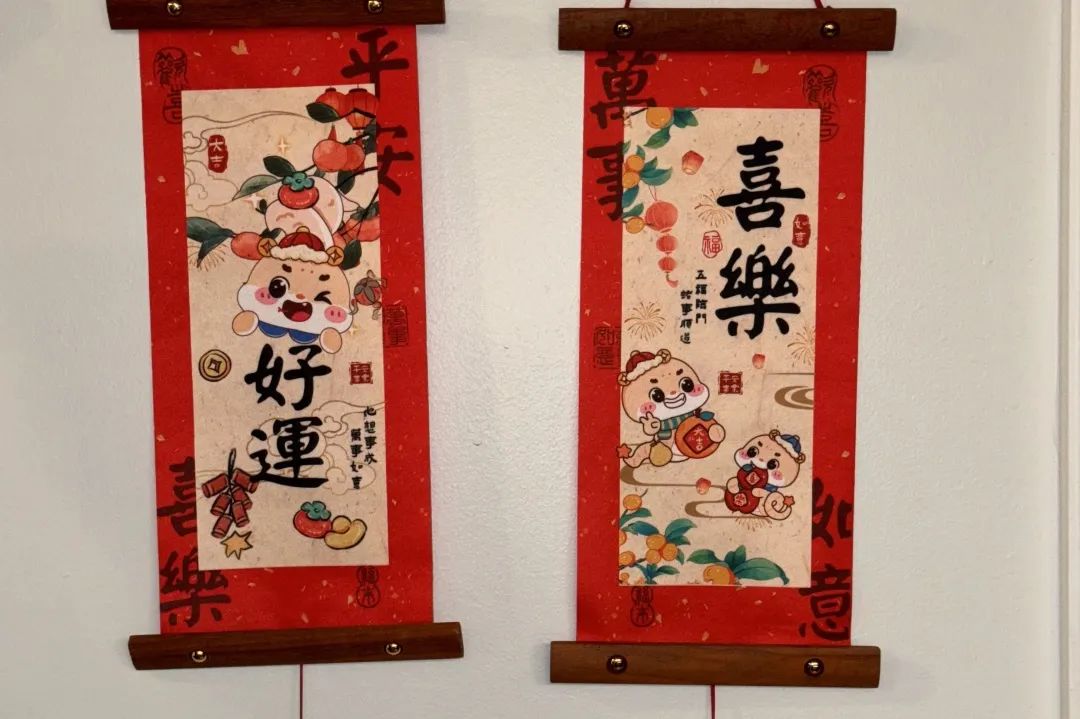 平安
大吉
好運
心想事成
萬事如意
喜樂
萬事
喜樂
如意
福
五福臨門
蛇事順遂
大吉
如意